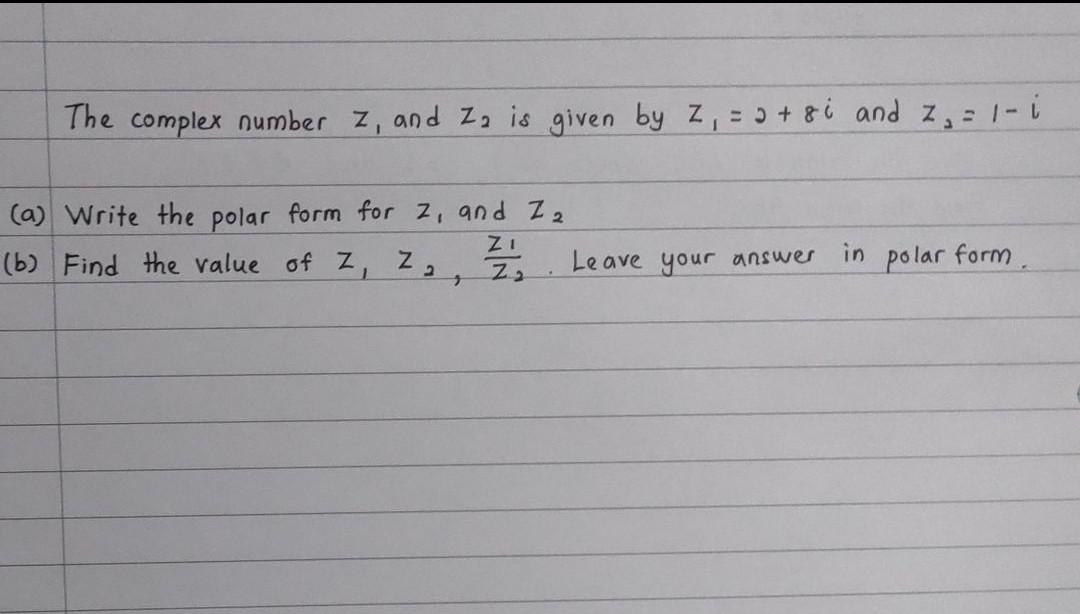 The complex number Z₁ and Z₂ is given by Z₁ = 2 + 8i and Z₂ = 1 - i
(a) Write the polar form for Z₁ and Z₂
(b) Find the value of Z₁ Z₂, Z₁/Z₂. Leave your answer in polar form.